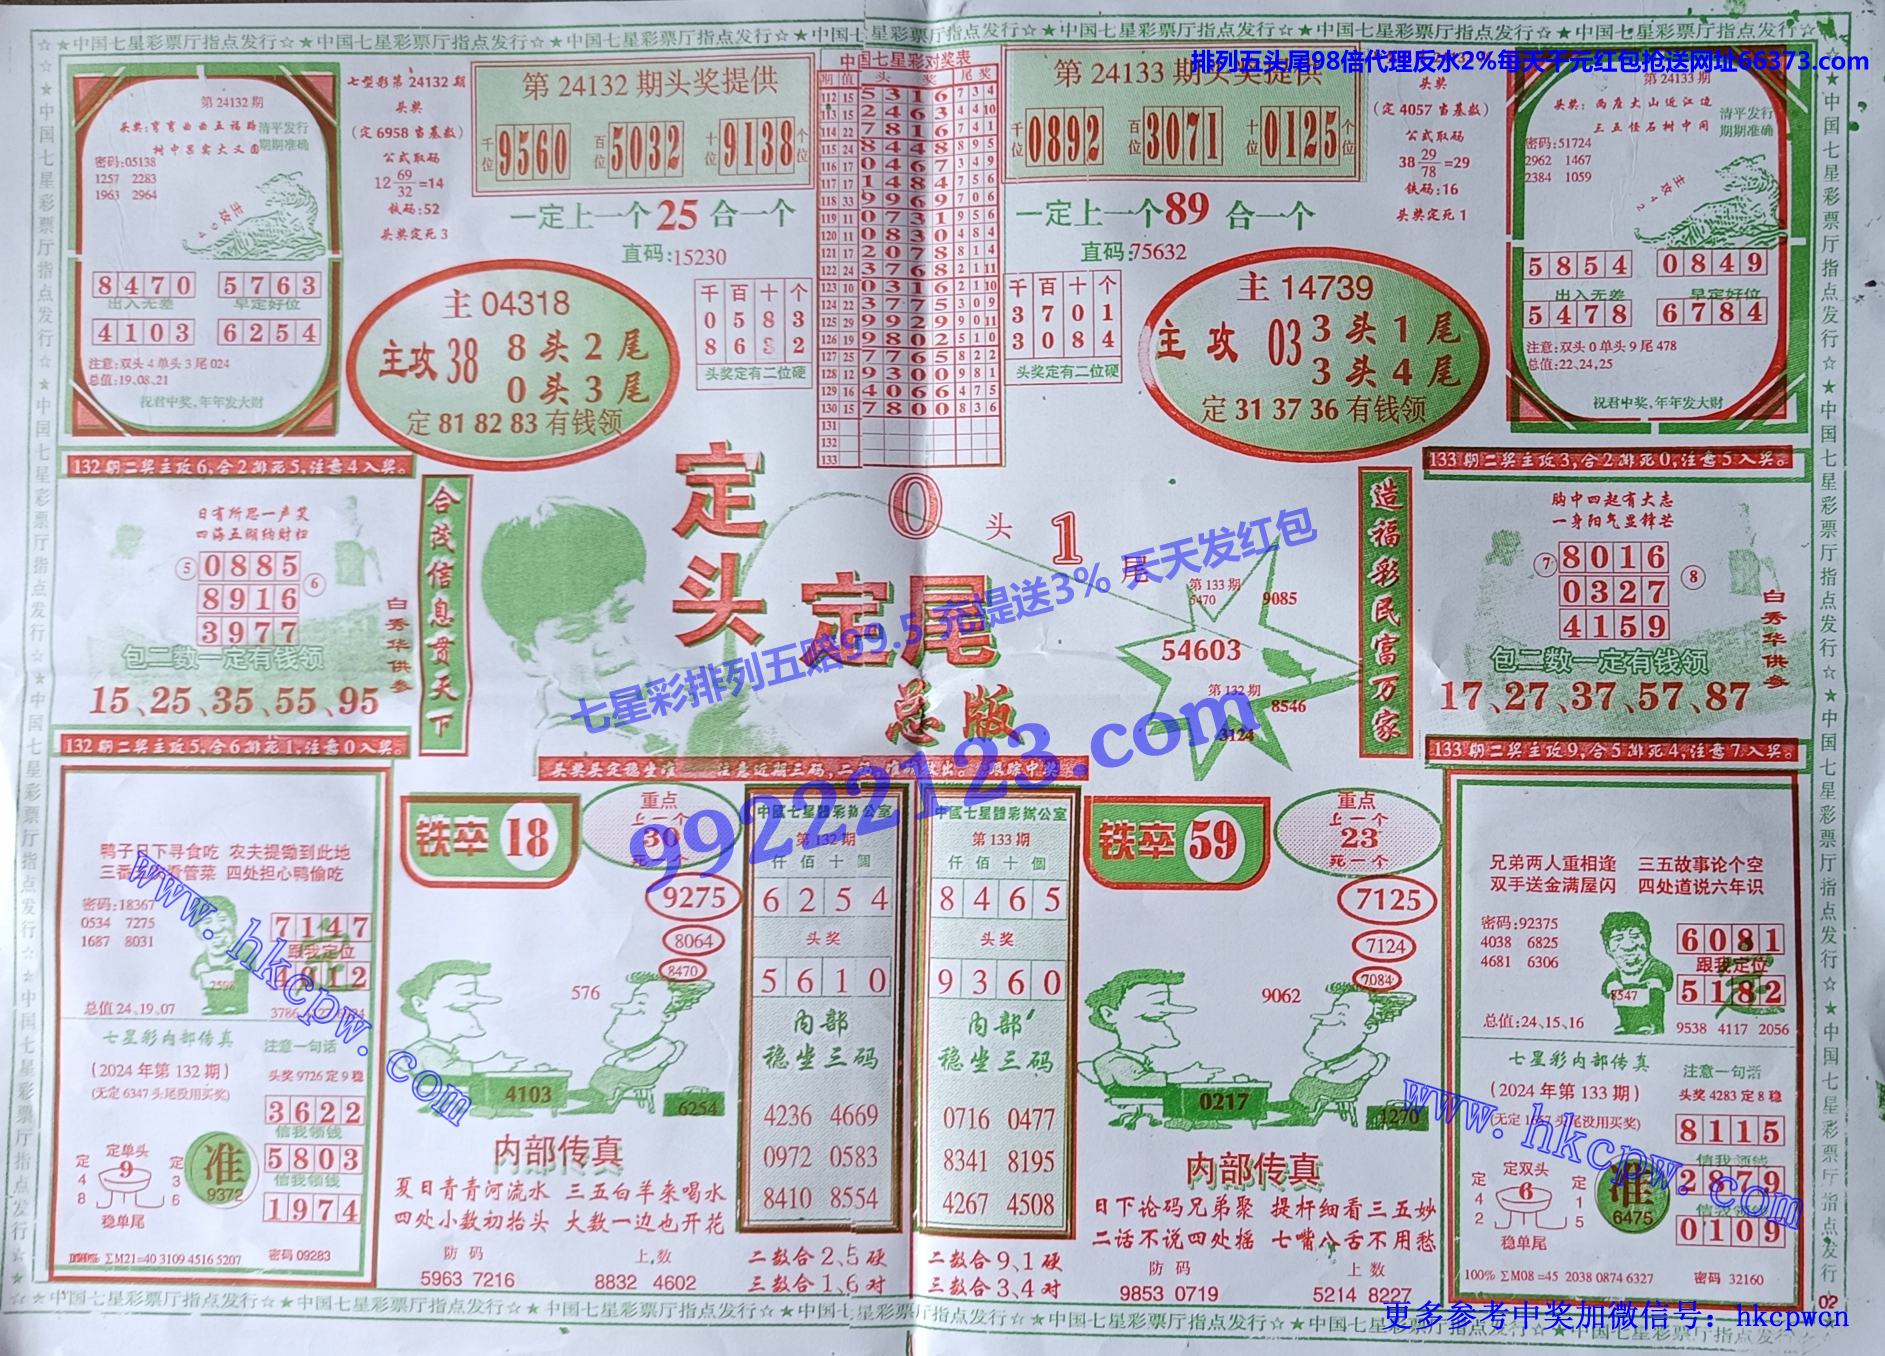 ☆★中国七星彩票厅指点发行☆★中国七星彩票厅指点发行☆★中国七星彩票厅指点发行☆
排列五头尾98倍代理反水2%每天千元红包抢送网址66373.com
第 24132 期
头奖:弯弯曲曲五福路
树中果实大又圆
清平发行
期期准确
密码:05138
1257 2283
1963 2964
8470 5763
出入无差 早定好位
4103 6254
注意:双头 4 单头 3 尾 024
总值:19,08,21
祝君中奖,年年发大财
七型彩第 24132 期
头奖
(定 6958 当基数)
公式取码
12 69/32 =14
铁码:52
头奖定死 3
第 24132 期头奖提供
千位 9560 百位 5032 十位 9138 个位
一定上一个 25 合一个
直码:15230
主 04318
主攻 38 8 头 2 尾
0 头 3 尾
定 81 82 83 有钱领
千 百 十 个
0 5 8 3
8 6 3 2
头奖定有二位硬
中国七星彩对奖表
期 值 头 奖 尾 奖
112 15 5316 7 3 4
113 15 2463 4 4 10
114 22 7816 7 4 1
115 24 8448 8 9 5
116 17 0467 3 4 9
117 17 1484 7 5 6
118 33 9969 7 0 6
119 11 0731 9 5 6
120 11 0830 4 8 4
121 17 2078 8 1 4
122 24 3768 2 1 11
123 10 0316 2 1 10
124 22 3775 3 0 9
125 29 9929 9 0 11
126 19 9802 5 1 0
127 25 7765 8 2 2
128 12 9300 9 8 1
129 16 4066 4 7 5
130 15 7800 8 3 6
131
132
133
第 24133 期头奖提供
千位 0892 百位 3071 十位 0125 个位
一定上一个 89 合一个
直码:75632
千 百 十 个
3 7 0 1
3 0 8 4
头奖定有二位硬
主 14739
主攻 03 3 头 1 尾
3 头 4 尾
定 31 37 36 有钱领
头奖
(定 4057 当基数)
公式取码
38 29/78 =29
铁码:16
头奖定死 1
第 24133 期
头奖:两座大山近江边
三五怪石树中间
清平发行
期期准确
密码:51724
2962 1467
2384 1059
主攻42
5854 0849
出入无差 早定好位
5478 6784
注意:双头 0 单头 9 尾 478
总值:22,24,25
祝君中奖,年年发大财
132期二奖主攻6,合2排死5,注意4入奖。
日有所思一声笑
四海五湖纳财归
⑤ 0885 ⑥
8916
3977
包二数一定有钱领
15、25、35、55、95
白秀华供参
合茂信息贯天下
定头 定尾
总版
0 头 1 尾
第 133 期
9085
54603
第 132 期
8546
3124
造福彩民富万家
133期二奖主攻3,合2排死0,注意5入奖。
胸中四起有大志
一身阳气显锋芒
⑦ 8016 ⑧
0327
4159
包二数一定有钱领
17、27、37、57、87
白秀华供参
七星彩排列五赔99.5 充提送3% 天天发红包
99222123.com
132期二奖主攻5,合6排死1,注意0入奖。
鸭子日下寻食吃 农夫提锄到此地
四处担心鸭偷吃
密码:18367
0534 7275
1687 8031
7147
跟我定位
4912
总值 24,19,07
七星彩内部传真
注意一句话
(2024 年第 132 期)
头奖 9726 定 9 稳
(无定 6347 头尾没用买奖)
3622
信我领钱
5803
信我领钱
1974
定单头
9
定 4 8
定 3 6
稳单尾
准
9372
∑M21=40 3109 4516 5207
密码 09283
铁卒 18
重点
上一个
30
死一个
9275
8064
8470
576
4103
6254
内部传真
夏日青青河流水 三五白羊来喝水
四处小数初抬头 大数一边也开花
防 码 上 数
5963 7216 8832 4602
中國七星體彩辦公室
第 132 期
仟 佰 十 個
6254
头 奖
5610
内部
稳坐三码
4236 4669
0972 0583
8410 8554
二数合 2、5 硬
三数合 1、6 对
中國七星體彩辦公室
第 133 期
仟 佰 十 個
8465
头 奖
9360
内部
稳坐三码
0716 0477
8341 8195
4267 4508
二数合 9、1 硬
三数合 3、4 对
铁卒 59
重点
上一个
23
死一个
7125
7124
7084
9062
0217
1270
内部传真
日下论码兄弟聚 提杆细看三五妙
二话不说四处摇 七嘴八舌不用愁
防 码 上 数
9853 0719 5214 8227
133期二奖主攻9,合5排死4,注意7入奖。
兄弟两人重相逢 三五故事论个空
双手送金满屋闪 四处道说六年识
密码:92375
4038 6825
4681 6306
6081
跟我定位
5182
8547
总值:24、15、16
9538 4117 2056
七星彩内部传真
注意一句话
(2024 年第 133 期)
头奖 4283 定 8 稳
8115
信我领钱
2879
信我领钱
0109
定双头
6
定 4 2
定 1 5
稳单尾
准
6475
100% ∑M08=45 2038 0874 6327
密码 32160
www.hkcpw.com
www.hkcpw.com
更多参考中奖加微信号: hkcpwcn
02